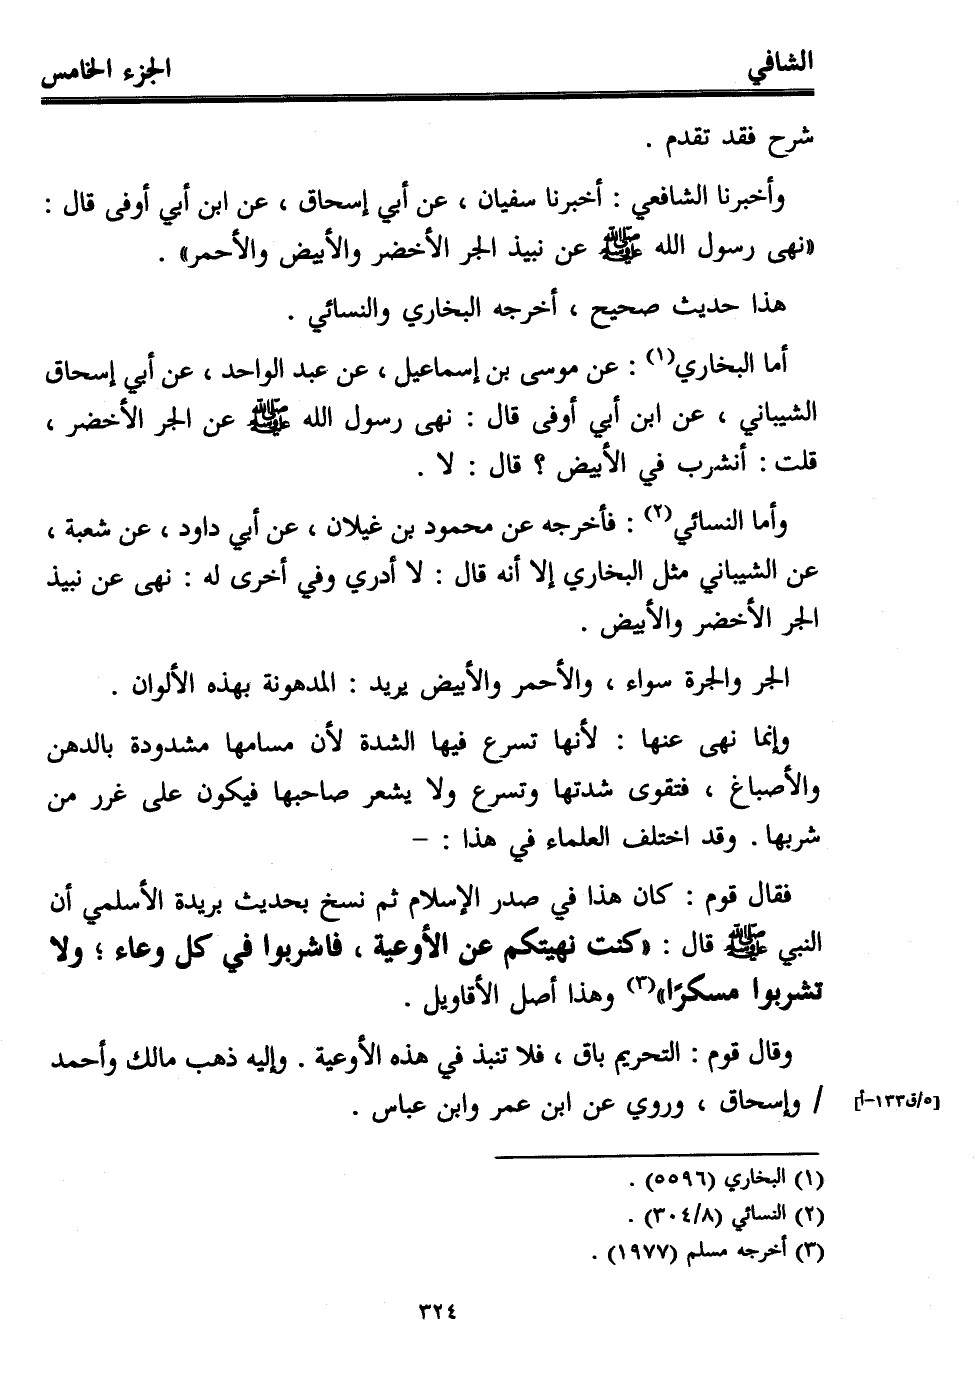 الشافي
الجزء الخامس
شرح فقد تقدم .
وأخبرنا الشافعي : أخبرنا سفيان ، عن أبي إسحاق ، عن ابن أبي أوفى قال :
«نهى رسول الله ﷺ عن نبيذ الجر الأخضر والأبيض والأحمر» .
هذا حديث صحيح ، أخرجه البخاري والنسائي .
أما البخاري(١) : عن موسى بن إسماعيل ، عن عبد الواحد ، عن أبي إسحاق
الشيباني ، عن ابن أبي أوفى قال : نهى رسول الله ﷺ عن الجر الأخضر ،
قلت : أنشرب في الأبيض ؟ قال : لا .
وأما النسائي(٢) : فأخرجه عن محمود بن غيلان ، عن أبي داود ، عن شعبة ،
عن الشيباني مثل البخاري إلا أنه قال : لا أدري وفي أخرى له : نهى عن نبيذ
الجر الأخضر والأبيض .
الجر والجرة سواء ، والأحمر والأبيض يريد : المدهونة بهذه الألوان .
وإنما نهى عنها : لأنها تسرع فيها الشدة لأن مسامها مشدودة بالدهن
والأصباغ ، فتقوى شدتها وتسرع ولا يشعر صاحبها فيكون على غرر من
شربها . وقد اختلف العلماء في هذا : –
فقال قوم : كان هذا في صدر الإسلام ثم نسخ بحديث بريدة الأسلمي أن
النبي ﷺ قال : «كنت نهيتكم عن الأوعية ، فاشربوا في كل وعاء ؛ ولا
تشربوا مسكرًا»(٣) وهذا أصل الأقاويل .
وقال قوم : التحريم باق ، فلا تنبذ في هذه الأوعية . وإليه ذهب مالك وأحمد
/ وإسحاق ، وروي عن ابن عمر وابن عباس .
[٥/ق١٣٣-أ]
(١) البخاري (٥٥٩٦) .
(٢) النسائي (٣٠٤/٨) .
(٣) أخرجه مسلم (١٩٧٧) .
٣٢٤